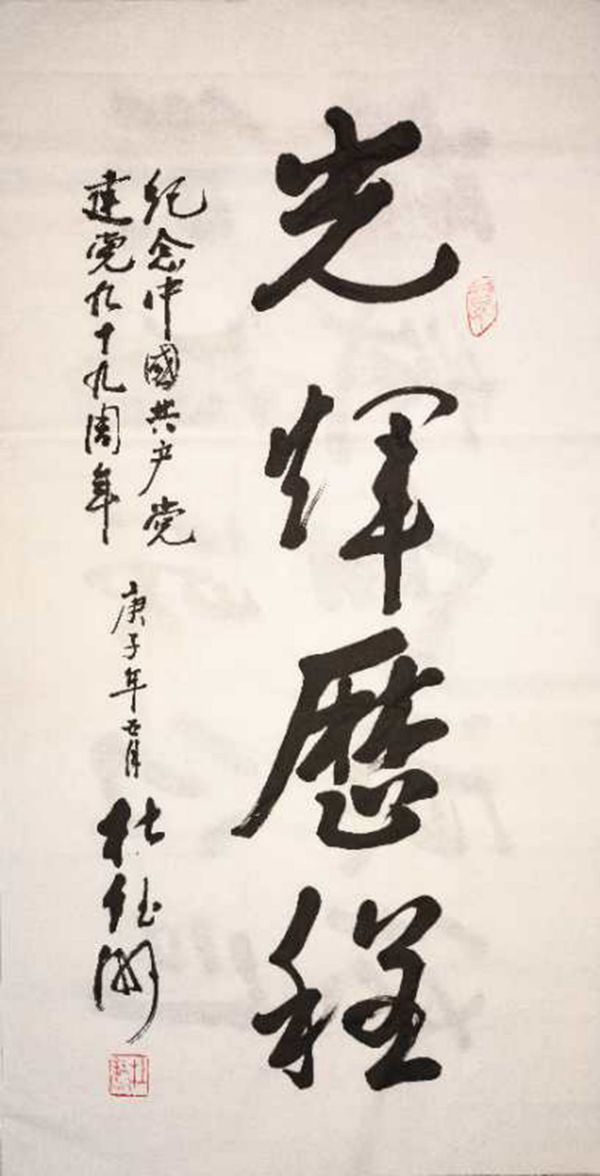 光輝歷程
纪念中國共产党
建党九十九周年
庚子年五月
杜